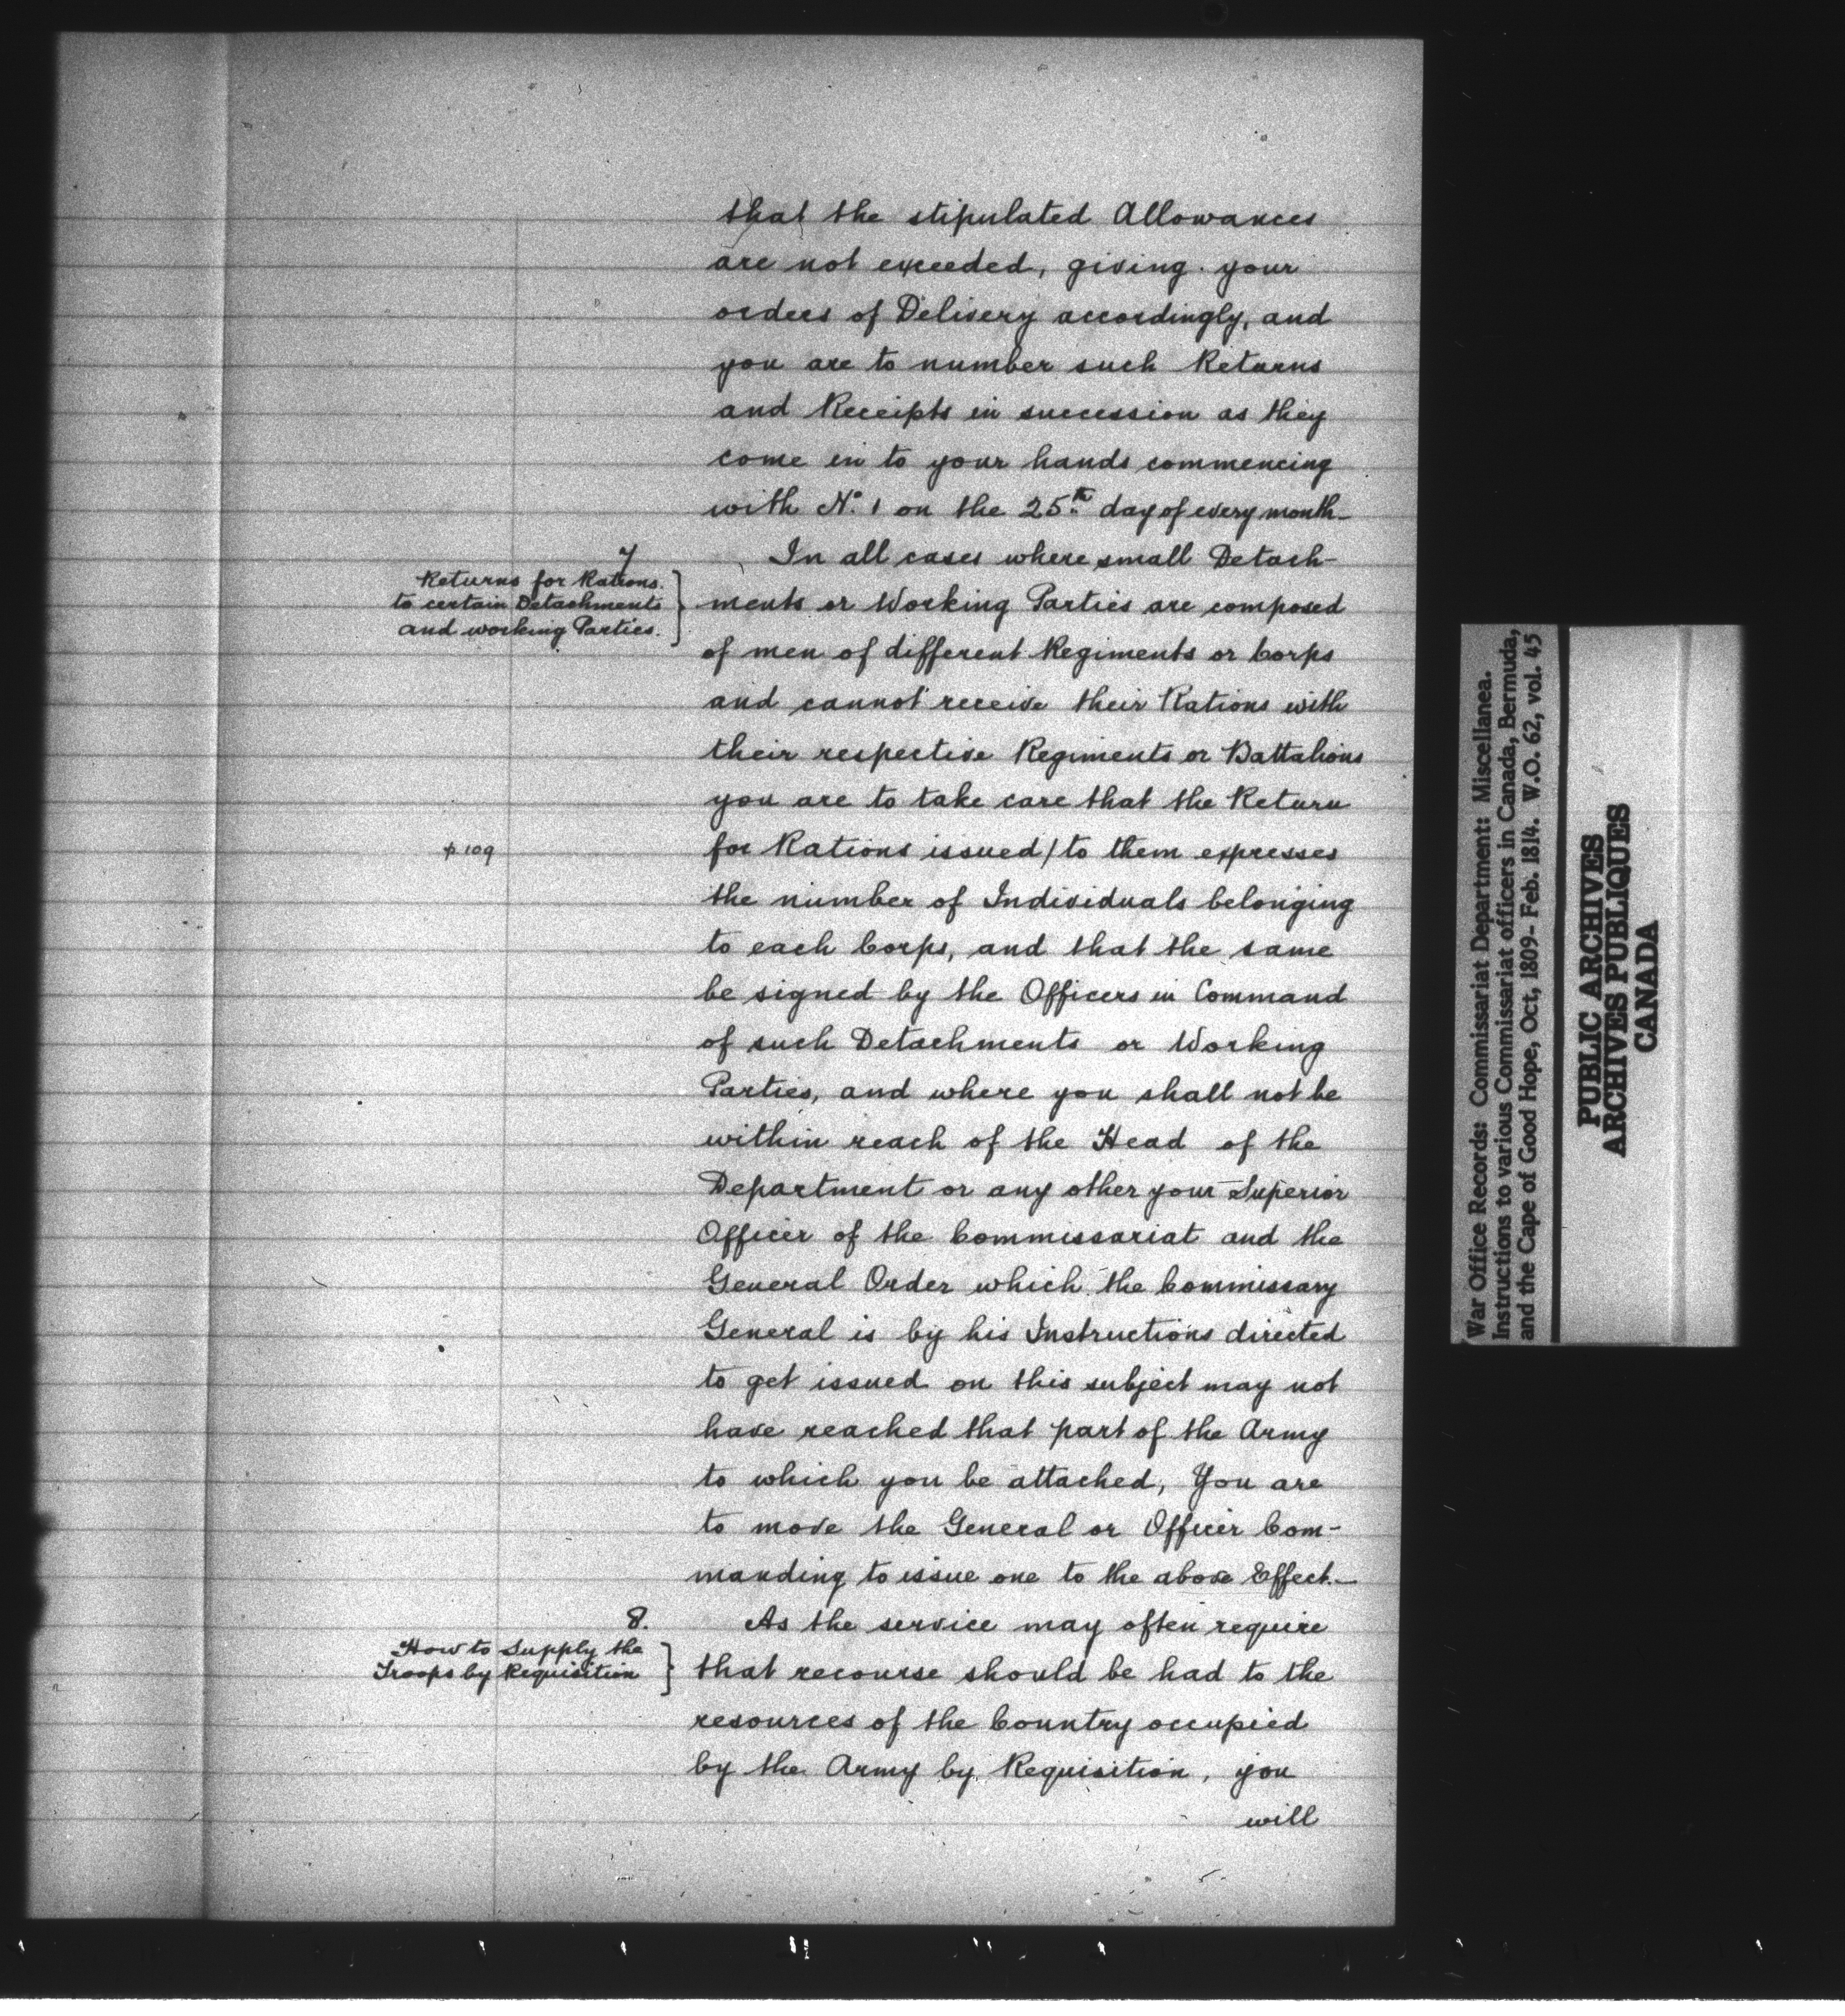 that the stipulated Allowances
are not exceeded, giving your
orders of Delivery accordingly, and
you are to number such Returns
and Receipts in succession as they
come in to your hands commencing
with No. 1 on the 25th day of every month_
7
Returns for Rations.
to certain Detachments
and working Parties.
In all cases where small Detach-
ments or Working Parties are composed
of men of different Regiments or Corps
and cannot receive their Rations with
their respective Regiments or Battalions
you are to take care that the Return
p 109
for Rations issued/to them expresses
the number of Individuals belonging
to each Corps, and that the same
be signed by the Officers in Command
of such Detachments or Working
Parties, and where you shall not be
within reach of the Head of the
Department or any other your Superior
Officer of the Commissariat and the
General Order which the Commissary
General is by his Instructions directed
to get issued on this subject may not
have reached that part of the Army
to which you be attached, You are
to move the General or Officer Com-
manding to issue one to the above Effect._
8.
How to Supply the
Troops by Requisition
As the service may often require
that recourse should be had to the
resources of the Country occupied
by the Army by Requisition, you
will
War Office Records: Commissariat Department: Miscellanea.
Instructions to various Commissariat officers in Canada, Bermuda,
and the Cape of Good Hope, Oct, 1809- Feb. 1814. W.O. 62, vol. 45
PUBLIC ARCHIVES
ARCHIVES PUBLIQUES
CANADA